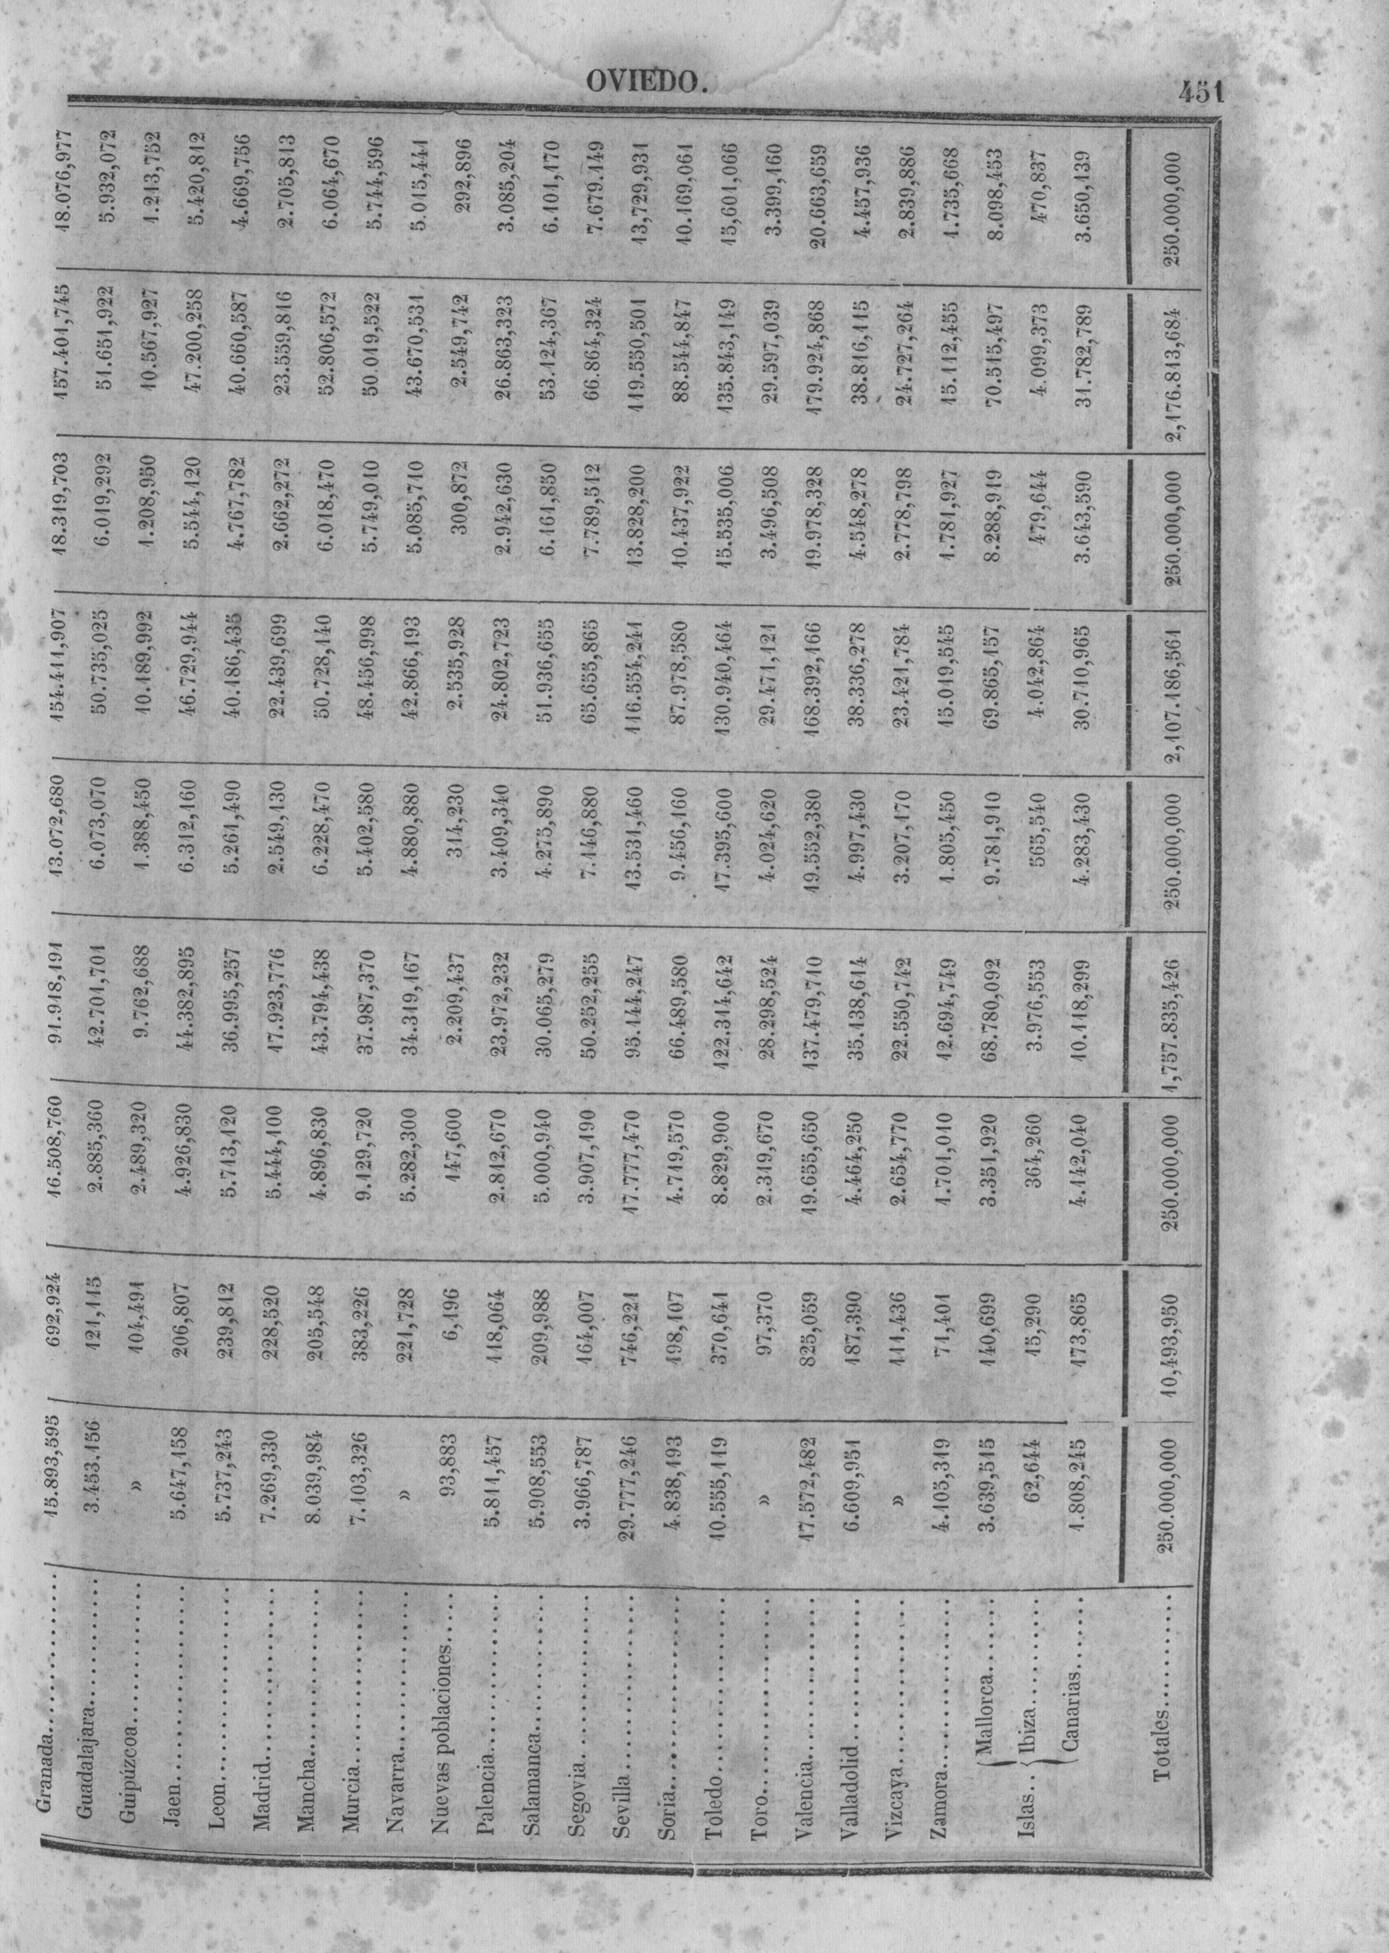 OVIEDO. 451
Granada............. 15.893,595 692,924 16.508,760 91.918,191 13.072,680 154.411,907 18.319,703 157.401,745 18.076,977
Guadalajara........... 3.453,156 121,115 2.885,360 42.701,701 6.073,070 50.735,025 6.019,292 51.651,922 5.932,072
Guipúzcoa........... » 104,491 2.489,320 9.762,688 1.388,450 10.189,992 1.208,950 10.567,927 1.213,752
Jaen................ 5.647,158 206,807 4.926,830 44.382,895 6.312,160 46.729,944 5.544,120 47.200,258 5.420,812
Leon................ 5.737,243 239,812 5.713,120 36.995,257 5.261,490 40.186,435 4.767,782 40.660,587 4.669,756
Madrid.............. 7.269,330 228,520 5.444,100 17.923,776 2.549,130 22.439,699 2.662,272 23.559,816 2.705,813
Mancha............. 8.039,984 205,548 4.896,830 43.794,438 6.228,470 50.728,140 6.018,470 52.806,572 6.064,670
Murcia.............. 7.103,326 383,226 9.129,720 37.987,370 5.402,580 48.456,998 5.749,010 50.019,522 5.744,596
Navarra............. » 221,728 5.282,300 34.319,167 4.880,880 42.866,193 5.085,710 43.670,531 5.015,441
Nuevas poblaciones..... 93,883 6,196 147,600 2.209,437 314,230 2.535,928 300,872 2.549,742 292,896
Palencia............. 5.811,457 118,064 2.812,670 23.972,232 3.409,340 24.802,723 2.942,630 26.863,323 3.085,204
Salamanca........... 5.908,553 209,988 5.000,940 30.065,279 4.275,890 51.936,655 6.161,850 53.124,367 6.101,170
Segovia............. 3.966,787 164,007 3.907,190 50.252,255 7.146,880 65.655,865 7.789,512 66.864,324 7.679.149
Sevilla.............. 29.777,246 746,221 17.777,470 95.144,247 13.531,460 116.554,241 13.828,200 119.550,501 13,729,931
Soria............... 4.838,193 198,107 4.719,570 66.489,580 9.456,160 87.978,580 10.437,922 88.544,847 10.169,061
Toledo.............. 10.555,119 370,641 8.829,900 122.314,642 17.395,600 130.940,464 15.535,006 135.843,149 15,601,066
Toro................ » 97,370 2.319,670 28.298,524 4.024,620 29.471,121 3.496,508 29.597,039 3.399,160
Valencia............. 17.572,482 825,059 19.655,650 137.479,710 19.552,380 168.392,166 19.978,328 179.924,868 20.663,659
Valladolid........... 6.609,951 187,390 4.464,250 35.138,614 4.997,430 38.336,278 4.548,278 38.816,115 4.457,936
Vizcaya............. » 111,436 2.654,770 22.550,742 3.207,170 23.421,784 2.778,798 24.727,264 2.839,886
Zamora............. 4.105,319 71,401 1.701,010 12.694,749 1.805,450 15.019,545 1.781,927 15.112,455 1.735,668
Mallorca...... 3.639,515 140,699 3.351,920 68.780,092 9.781,910 69.865,157 8.288,919 70.515,497 8.098,453
Islas.. Ibiza......... 62,644 15,290 364,260 3.976,553 565,540 4.042,864 479,644 4.099,373 470,837
Canarias...... 1.808,245 173,865 4.142,040 10.118,299 4.283,430 30.710,965 3.643,590 31.782,789 3.650,139
Totales......... 250.000,000 10,493,950 250.000,000 1,757.835,426 250.000,000 2,107.186,561 250.000,000 2,176.813,684 250.000,000